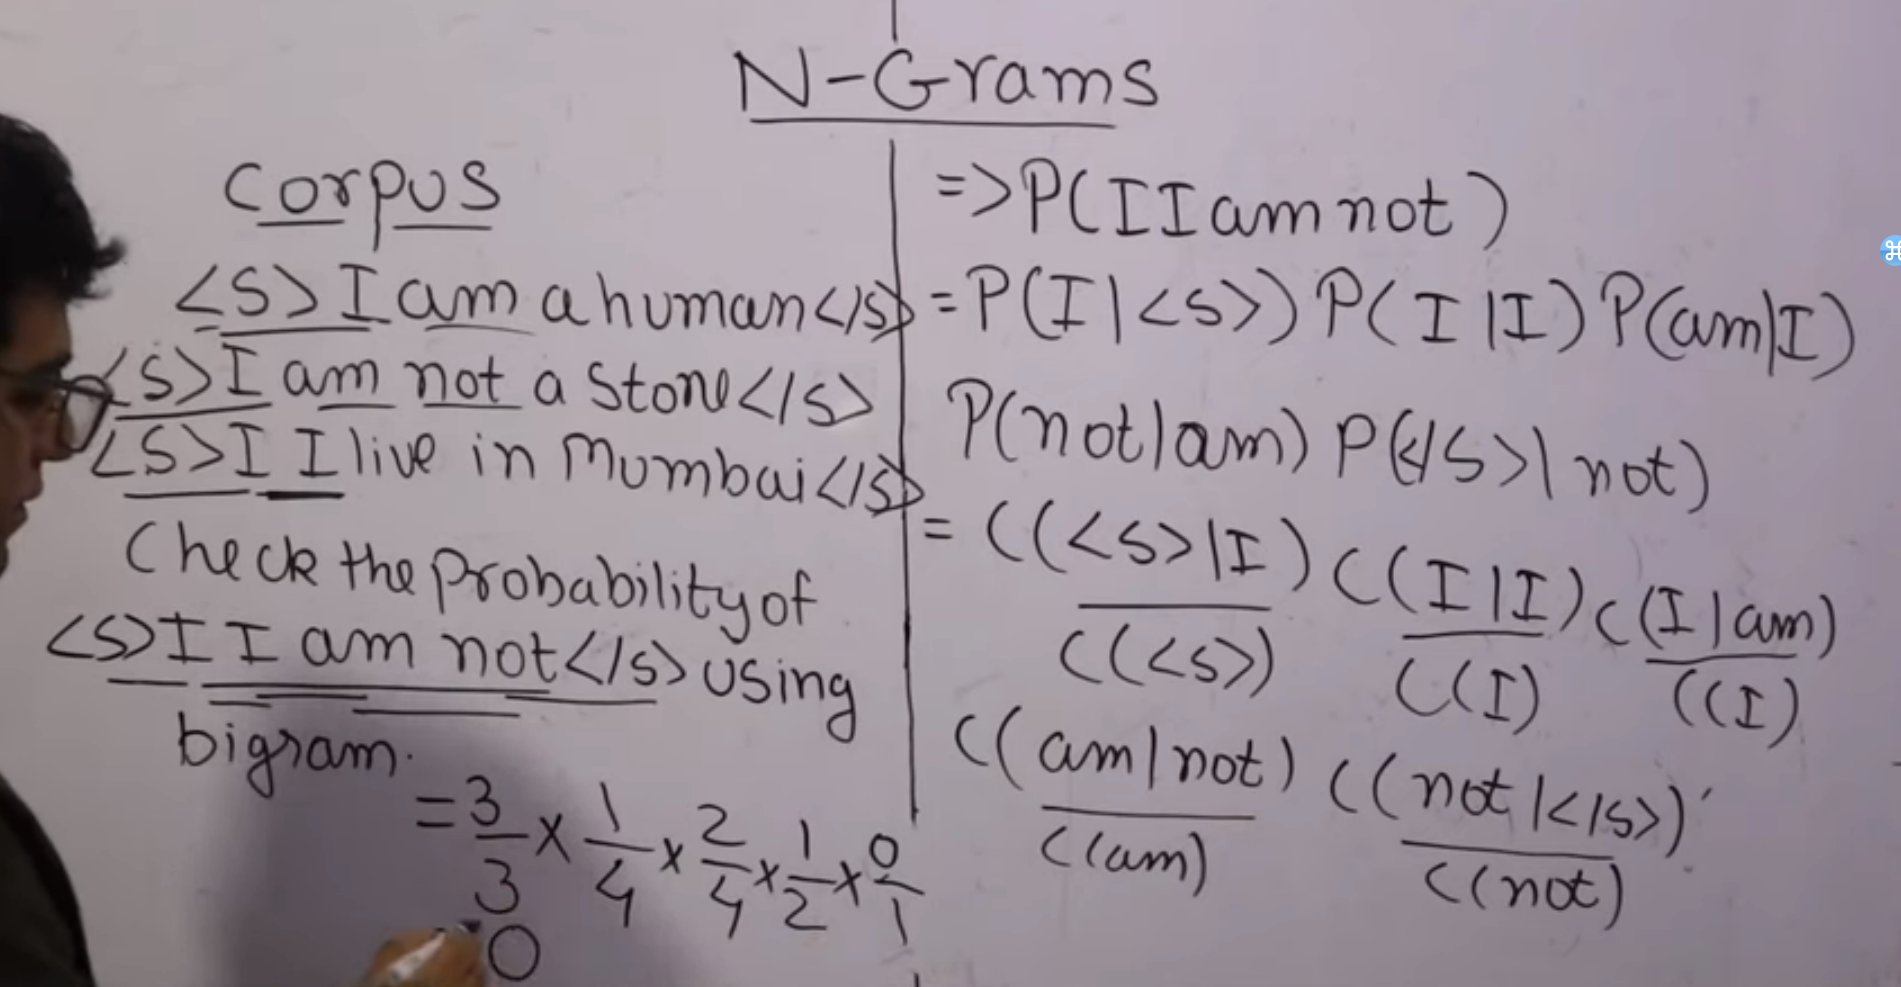 N-Grams
Corpus
<S> I am a human </S>
<S> I am not a Stone </S>
<S> I I live in Mumbai </S>
Check the Probability of
<S> I I am not </S> using
bigram.
= 3/3 x 1/4 x 2/4 x 1/2 x 0/1
0
=> P(I I am not)
= P(I|<S>) P(I|I) P(am|I)
P(not|am) P(</S>|not)
= C(<S>|I) C(I|I) C(I|am)
C(<S>) C(I) C(I)
C(am|not) C(not|</S>)
C(am) C(not)